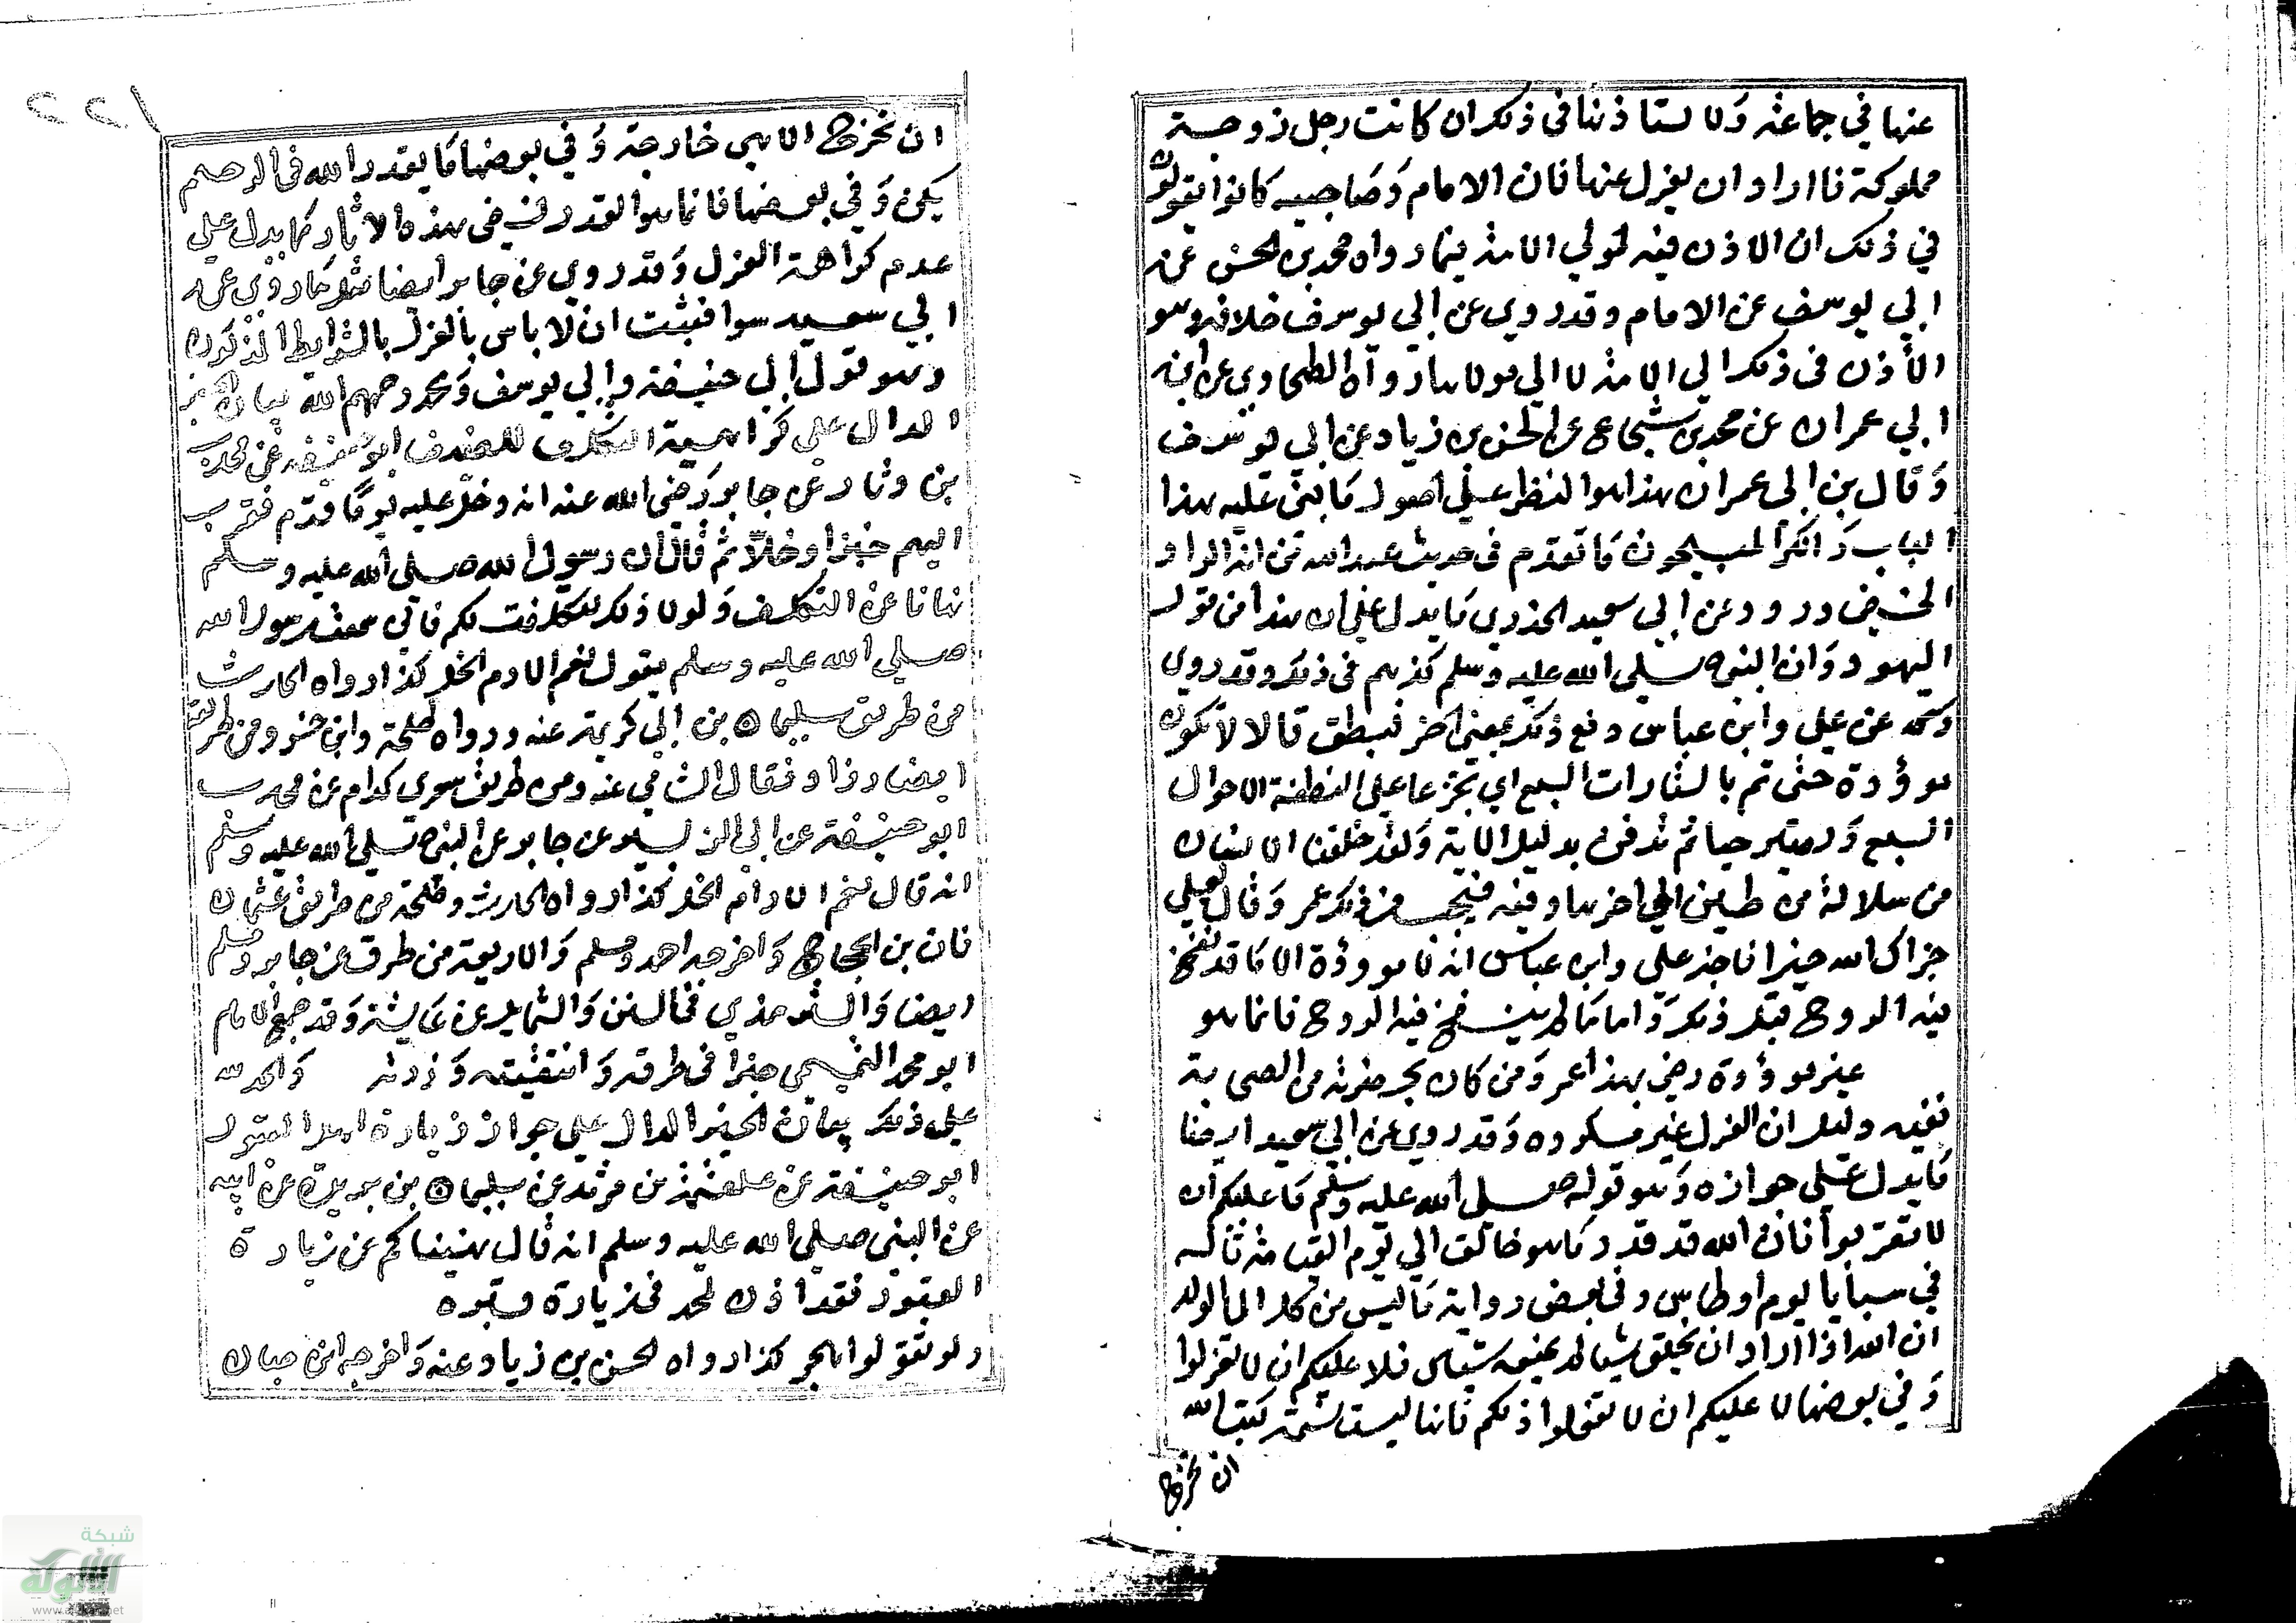 عنها في جماعته ولا يستاذنها في ذلك ان كانت رجل زوجة
مملوكة فااراد ان يعزل عنها فان الامام وصاحبيه كانوا يقولون
في ذلك ان الاذن فيه لمولي الامة فيما رواه محمد بن الحسن عن
ابي يوسف عن الامام وقد روي عن ابي يوسف خلافه وهو
الأذن في ذلك الي الامة لا الي مولاها رواه الطحاوي عن ابن
ابي عمران عن محمد بن شجاع عن الحسن بن زياد عن ابي يوسف
وقال بن ابي عمران هذا هو النظر علي اصول ما بني عليه هذا
الباب ما تقدم في حديث عبد الله من
ورود عن ابي سعيد الخدري ما يدل علي ان هذا من قول
اليهود وان النبي صلي الله عليه وسلم كذبهم في ذلك وقد روي
عن علي وابن عباس دفع ذلك بمعني اخر قالا لا تكون
موؤدة حتى تمر بالتارات السبع علي النطفة الاحوال
السبع حيا ثم تدفن بدليل الاية ولقد خلقنا الانسان
من سلالة من طين الي اخرها وفيه ذلك عمر وقال لعلي
جزاك الله خيرا علي وابن عباس انه لا موؤدة الا ما قد نفخ
فيه الروح قبل ذلك واما ما لم ينفخ فيه الروح فانما هو
غير موؤدة رضي بهذا عمر ومن كان بحضرته من الصحابة
ففيه دليل ان العزل غير مكروه وقد روي عن ابي سعيد ايضا
ما يدل علي جوازه وهو قوله صلي الله عليه وسلم ما عليكم ان
لا فان الله قد قدر ما هو خالق الي يوم القيامة قاله
في سبايا يوم اوطاس وفي بعض رواية ما ليس من كل الما الولد
ان الله اذا اراد ان يخلق شيا لم يمنعه شئ فلا عليكم ان لا تعزلوا
وفي بعضها لا عليكم ان لا تفعلوا ذلكم فانها ليست نسمة كتب الله
ان تخرج
ان تخرج الا هي خارجة وفي بعضها ما يقدر الله في الرحم
يكن وفي بعضها فانما هو القدر ففي هذه الاثار كما يدل علي
عدم كراهة العزل وقد روي عن جابر ايضا مثل ما روي عن
ابي سعيد سوا فثبت ان لا باس بالعزل بالشرايط المذكورة
وهو قول ابي حنيفة وابي يوسف ومحمد رحمهم الله بيان الخبر
الدال علي كراهية التكلف للضيف ابو حنيفة عن محارب
بن دثار عن جابر رضي الله عنه انه دخل عليه يوما قوم فقرب
اليهم خبزا وخلا ثم قال ان رسول الله صلي الله عليه وسلم
نهانا عن التكلف ولولا ذلك لتكلفت لكم فاني سمعت رسول الله
صلي الله عليه وسلم يقول نعم الادم الخل كذا رواه الحارث
من طريق سليمان بن ابي كريمة عنه ورواه طلحة وابن خسرو من طريقه
ايضا وزاد فقال الشافي عنه ومن طريق مسعر بن كدام عن محارب
ابو حنيفة عن ابي الزبير عن جابر عن النبي صلي الله عليه وسلم
انه قال نعم الادام الخل كذا رواه الحارث وطلحة من طريق عثمان
بن واخرجه احمد ومسلم والاربعة من طرق عن جابر ومسلم
ايضا والترمذي في السنن والشمايل عن عايشة وقد جمع الامام
ابو محمد التميمي جزا في طرقه وانتقيته وزدته والحمد لله
علي ذلك بيان الخبر الدال علي جواز زيارة القبور
ابو حنيفة عن علقمة بن مرثد عن سليمان بن بريدة عن ابيه
عن النبي صلي الله عليه وسلم انه قال نهيناكم عن زيارة
القبور فقد اذن لمحمد في زيارة قبر امه
ولا تقولوا هجرا كذا رواه الحسن بن زياد عنه واخرجه ابن حبان
شبكة
الألوكة